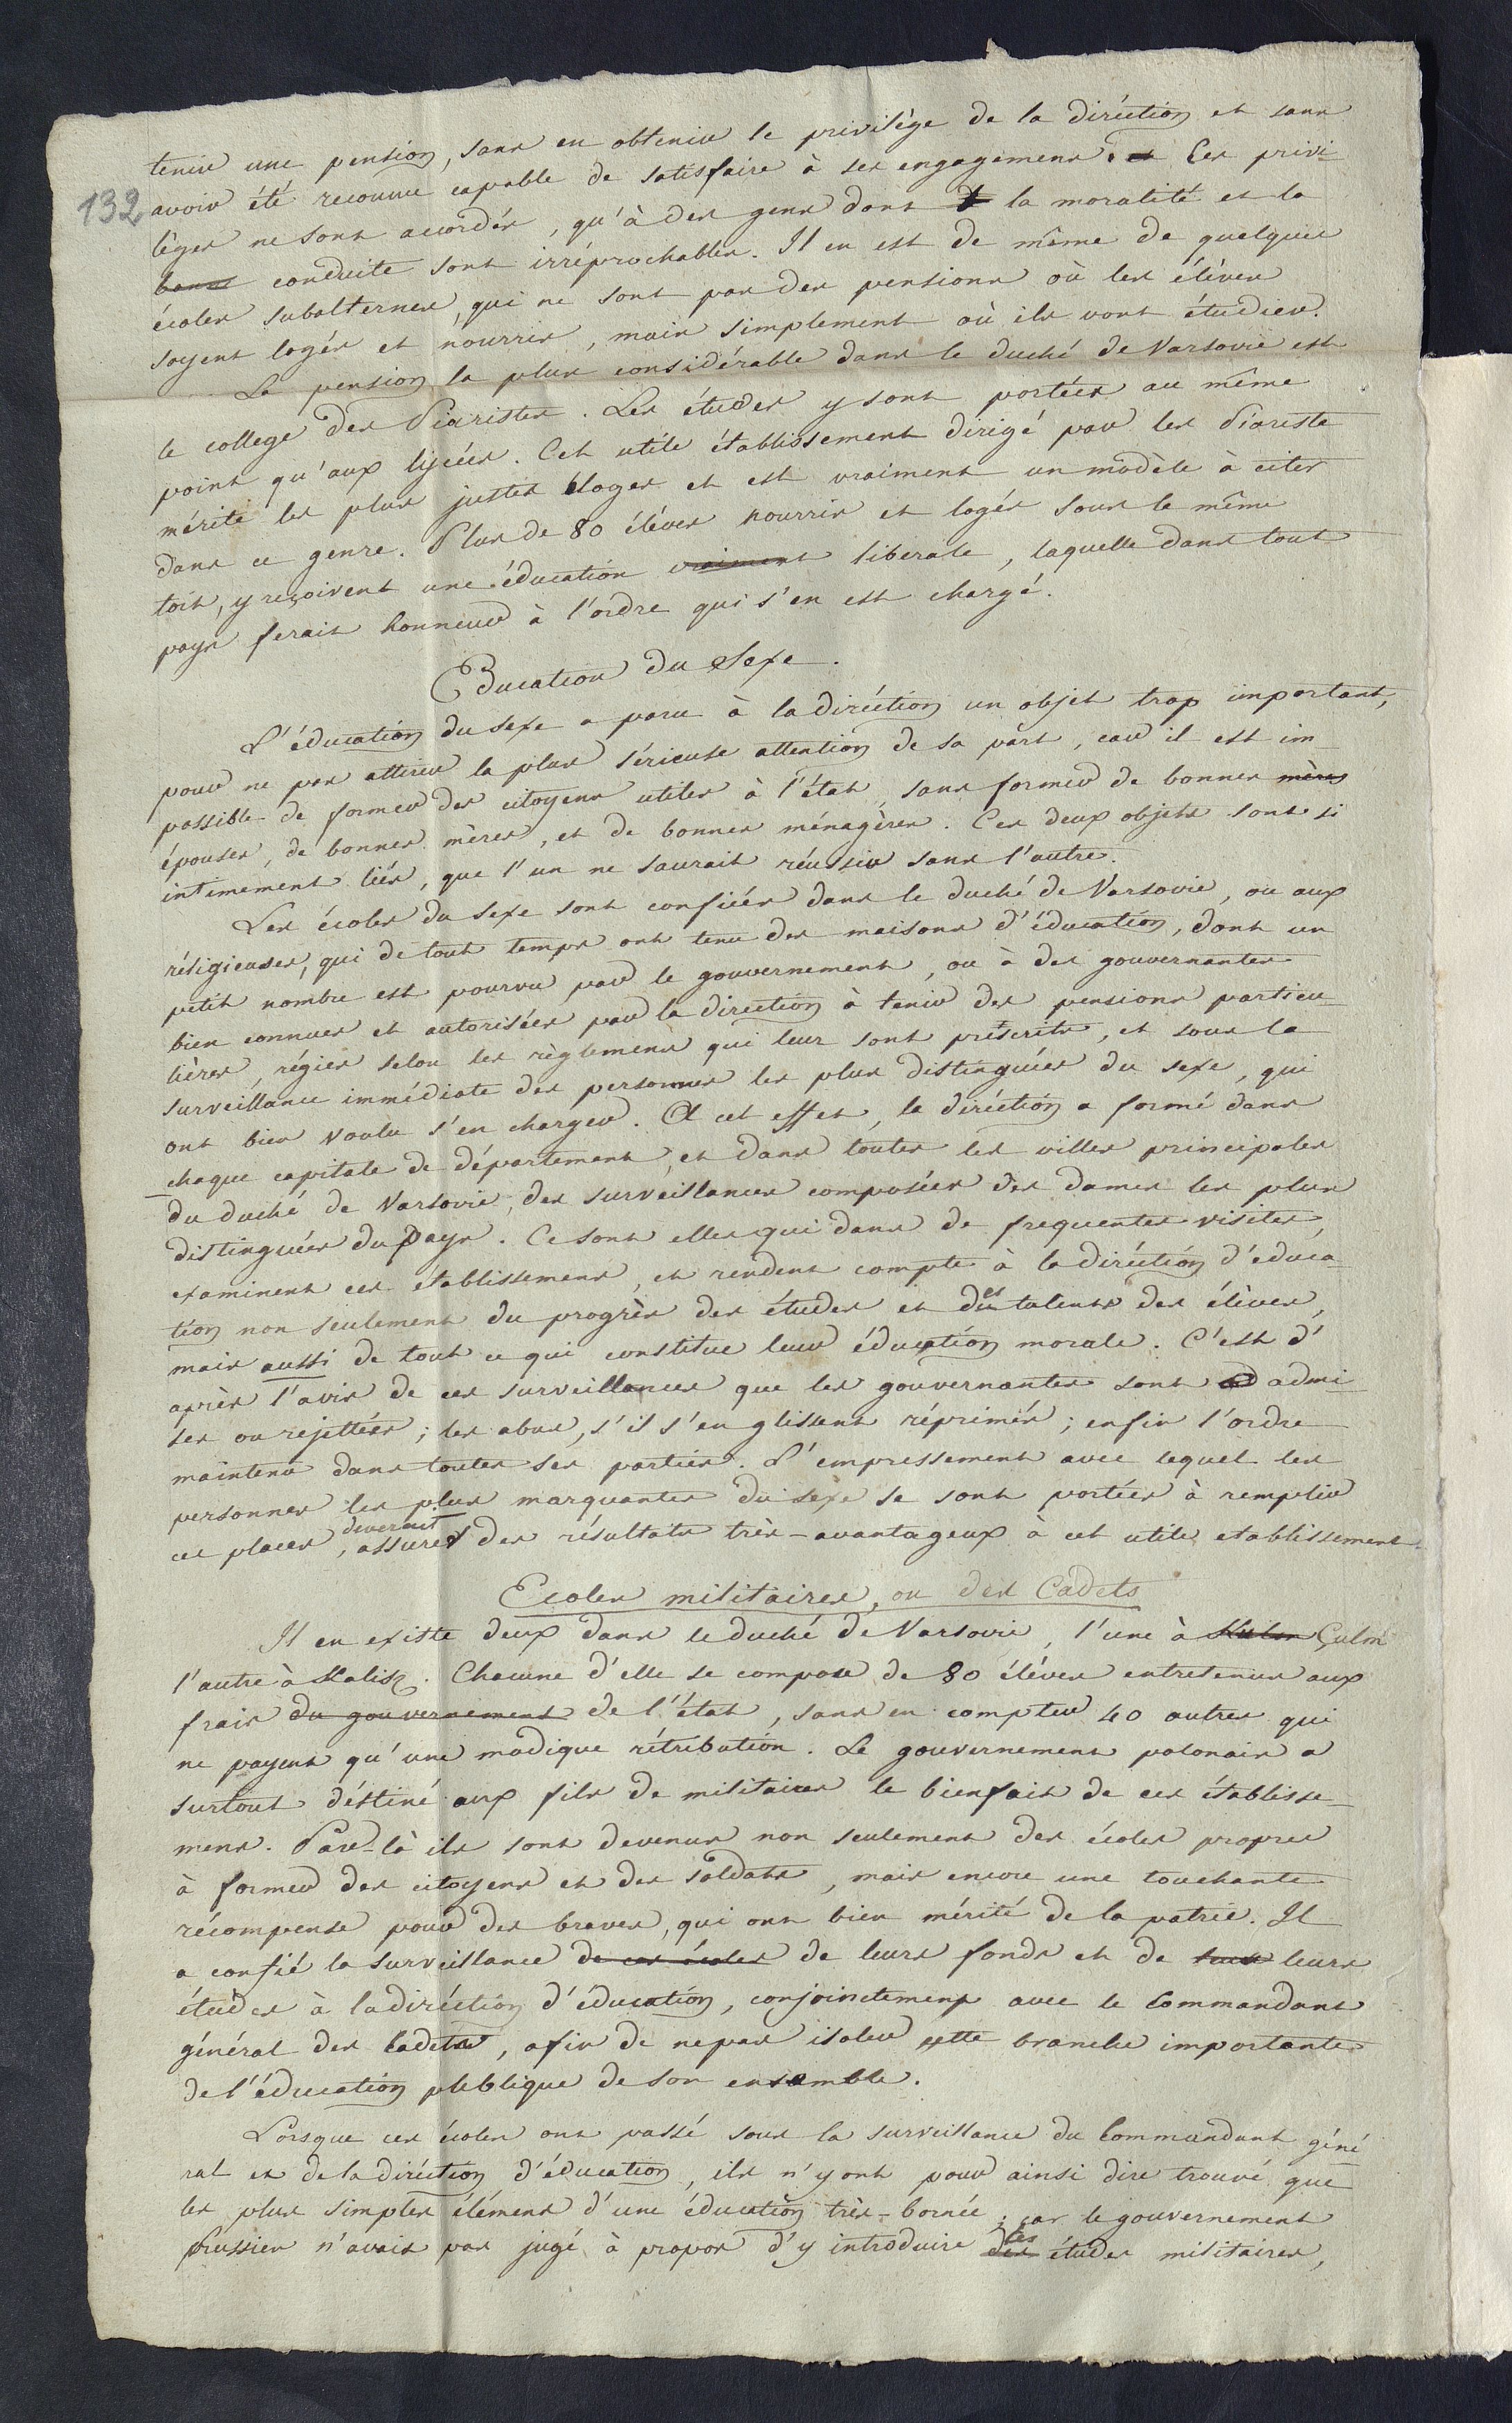 132
tenir une pension, sans en obtenir le privilège de la diréction et sans
avoir été reconnu capable de satisfaire à ses engagemens. Ces privi-
lèges ne sont accordés, qu'à des gens dont la moralité et la
conduite sont irréprochables. Il en est de même de quelques
écoles subalternes, qui ne sont pas des pensions où les élèves
soyent logés et nourris, mais simplement où ils vont étudier.
La pension la plus considérable dans le duché de Varsovie est
le college des Piaristes. Les études y sont portées au même
point qu'aux lycées. Cet utile établissement dirigé par les Piariste
mérite les plus justes éloges et est vraiment un modèle à citer
dans ce genre. Plus de 80 élèves nourris et logés sous le même
toit, y reçoivent une éducation vraiment liberale, laquelle dans tout
pays ferait honneur à l'ordre qui s'en est chargé.
Education du Sexe.
L'éducation du sexe a paru à la diréction un objet trop important,
pour ne pas attirer la plus sérieuse attention de sa part, car il est im-
possible de former des citoyens utiles à l'état, sans former de bonnes mères
épouses, de bonnes mères, et de bonnes ménagères. Ces deux objets sont si
intimement liés, que l'un ne saurait réussir sans l'autre.
Les écoles du sexe sont confiées dans le duché de Varsovie, ou aux
réligieuses, qui de tout temps ont tenu des maisons d'éducation, dont un
petit nombre est pourvu par le gouvernement, ou à des gouvernantes
bien connues et autorisées par la direction à tenir des pensions particu-
lières, régies selon les règlemens qui leur sont préscrits, et sous la
surveillance immédiate des personnes les plus distinguées du sexe, qui
ont bien voulu s'en charger. A cet effet, la diréction a formé dans
chaque capitale de département, et dans toutes les villes principales
du duché de Varsovie, des surveillances composées des dames les plus
distinguées du pays. Ce sont elles qui dans de frequentes visites,
examinent ces établissemens, et rendent compte à la diréction d'educa-
tion non seulement du progrès des études et des talents des élèves,
mais aussi de tout ce qui constitue leur éducation morale. C'est d'
après l'avis de ces surveillances que les gouvernantes sont admi-
ses ou rejettées; les abus, s'il s'en glissent réprimés; enfin l'ordre
maintenu dans toutes ses parties. L'empressement avec lequel les
personnes les plus marquantes du sexe se sont portées à remplir
ces places, deverait assurer des résultats très-avantageux à cet utile etablissement.
Ecoles militaires, ou des Cadets
Il en existe deux dans le duché de Varsovie, l'une à Culm
l'autre à Kalisz. Chacune d'elle se compose de 80 élèves entretenus aux
frais du gouvernement de l'état, sans en compter 40 autres qui
ne payent qu'une modique rétribution. Le gouvernement polonais a
surtout déstiné aux fils de militaires le bienfait de ces établisse-
mens. Par-là ils sont devenus non seulement des écoles propres
à former des citoyens et des soldats, mais encore une touchante
récompense pour des braves, qui ont bien mérité de la patrie. Il
a confié la surveillance de ces écoles de leurs fonds et de leurs
études à la diréction d'éducation, conjoinctement avec le Commandant
général des Cadets, afin de ne pas isoler cette branche importante
de l'éducation publique de son ensemble.
Lorsque ces écoles ont passé sous la surveillance du Commandant géné-
ral et de la diréction d'éducation, ils n'y ont pour ainsi dire trouvé que
les plus simples élémens d'une éducation très-bornée; car le gouvernement
prussien n'avait pas jugé à propos d'y introduire des les études militaires,